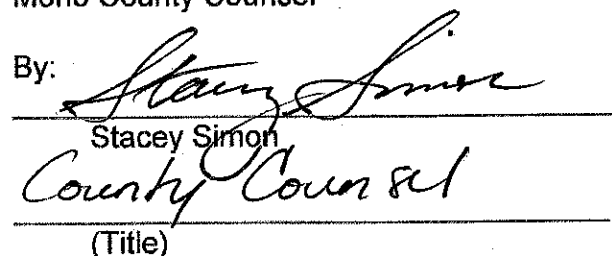 Mono County Counsel
By: Stacey Simon
Stacey Simon
County Counsel
(Title)